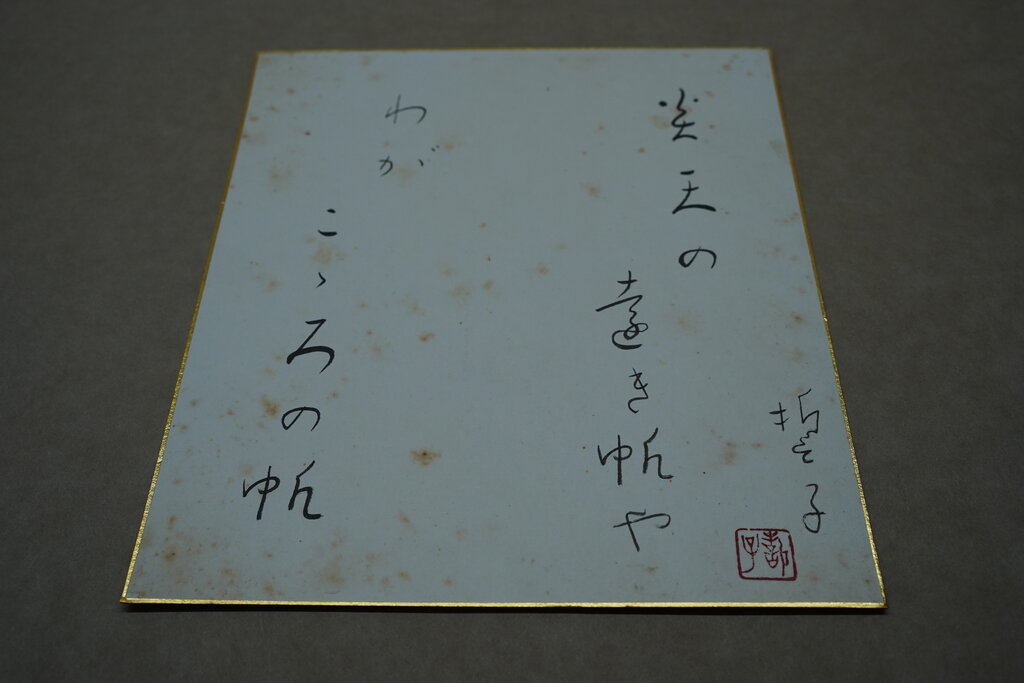 誓子
炎天の
遠き帆や
わが
こゝろの帆